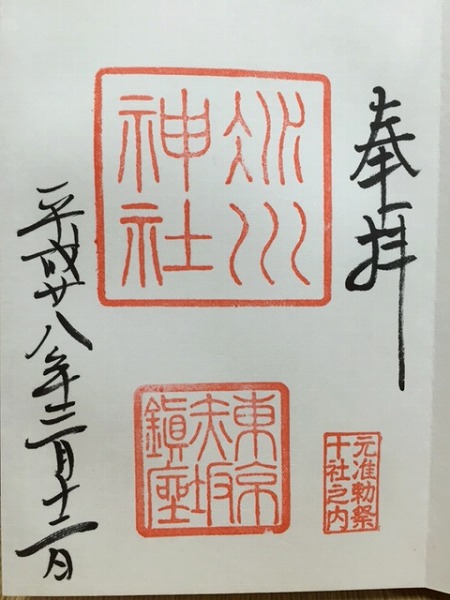 奉拝
冰川
神社
東京
赤坂
鎭座
元准勅祭
十社之内
平成廿八年三月十二日